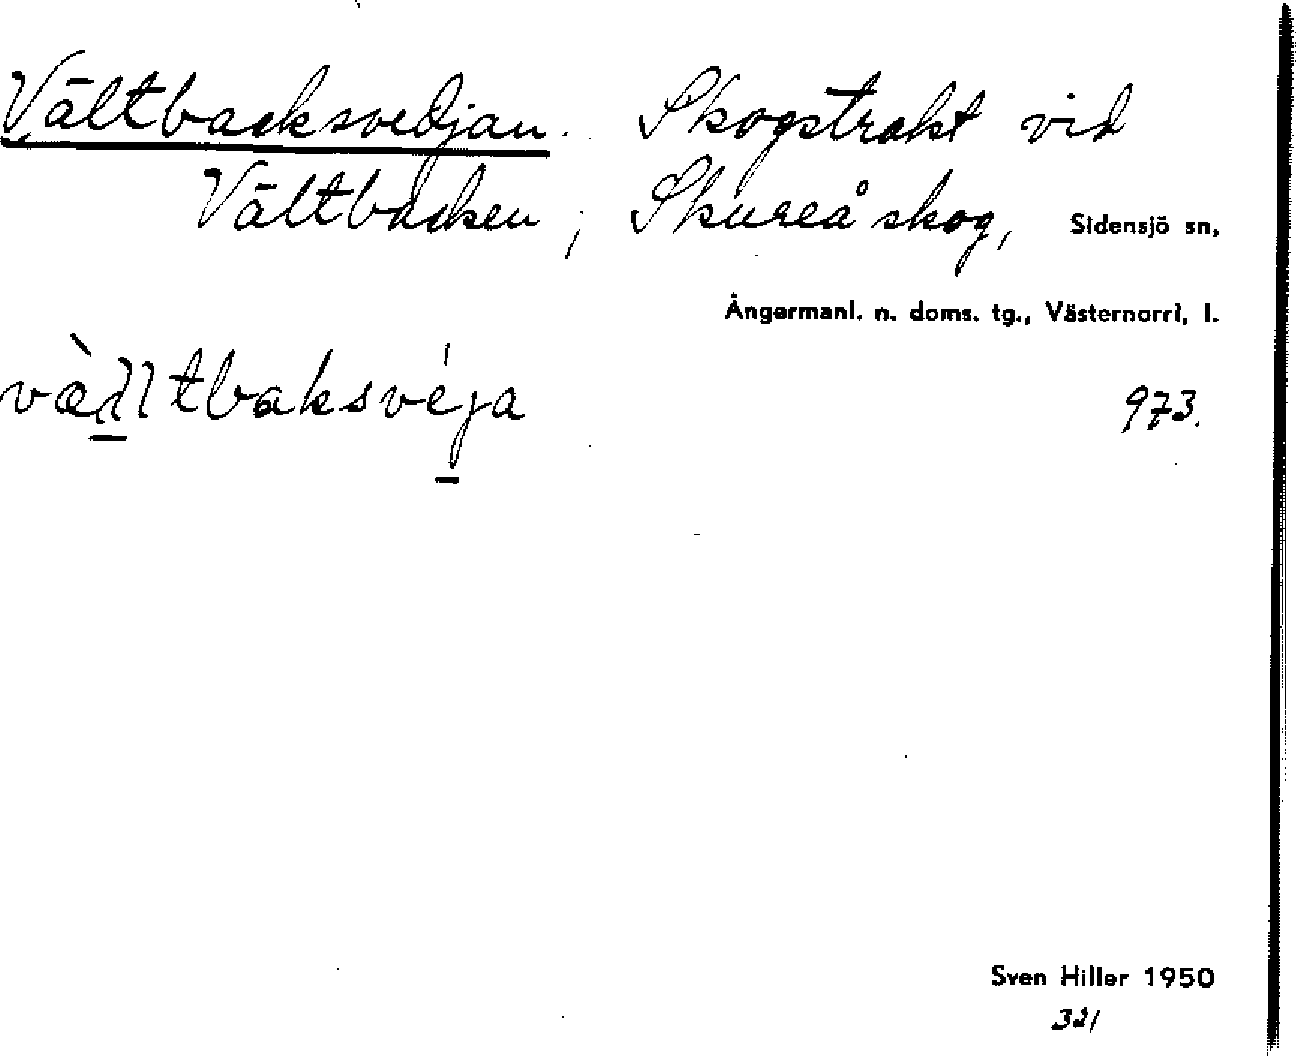 Vältbacksvedjan. Skogstrakt vid
Vältbacken; Skureå skog, Sidensjö sn,
Ångermanl. n. doms. tg., Västernorrl. l.
973.
Sven Hiller 1950
321